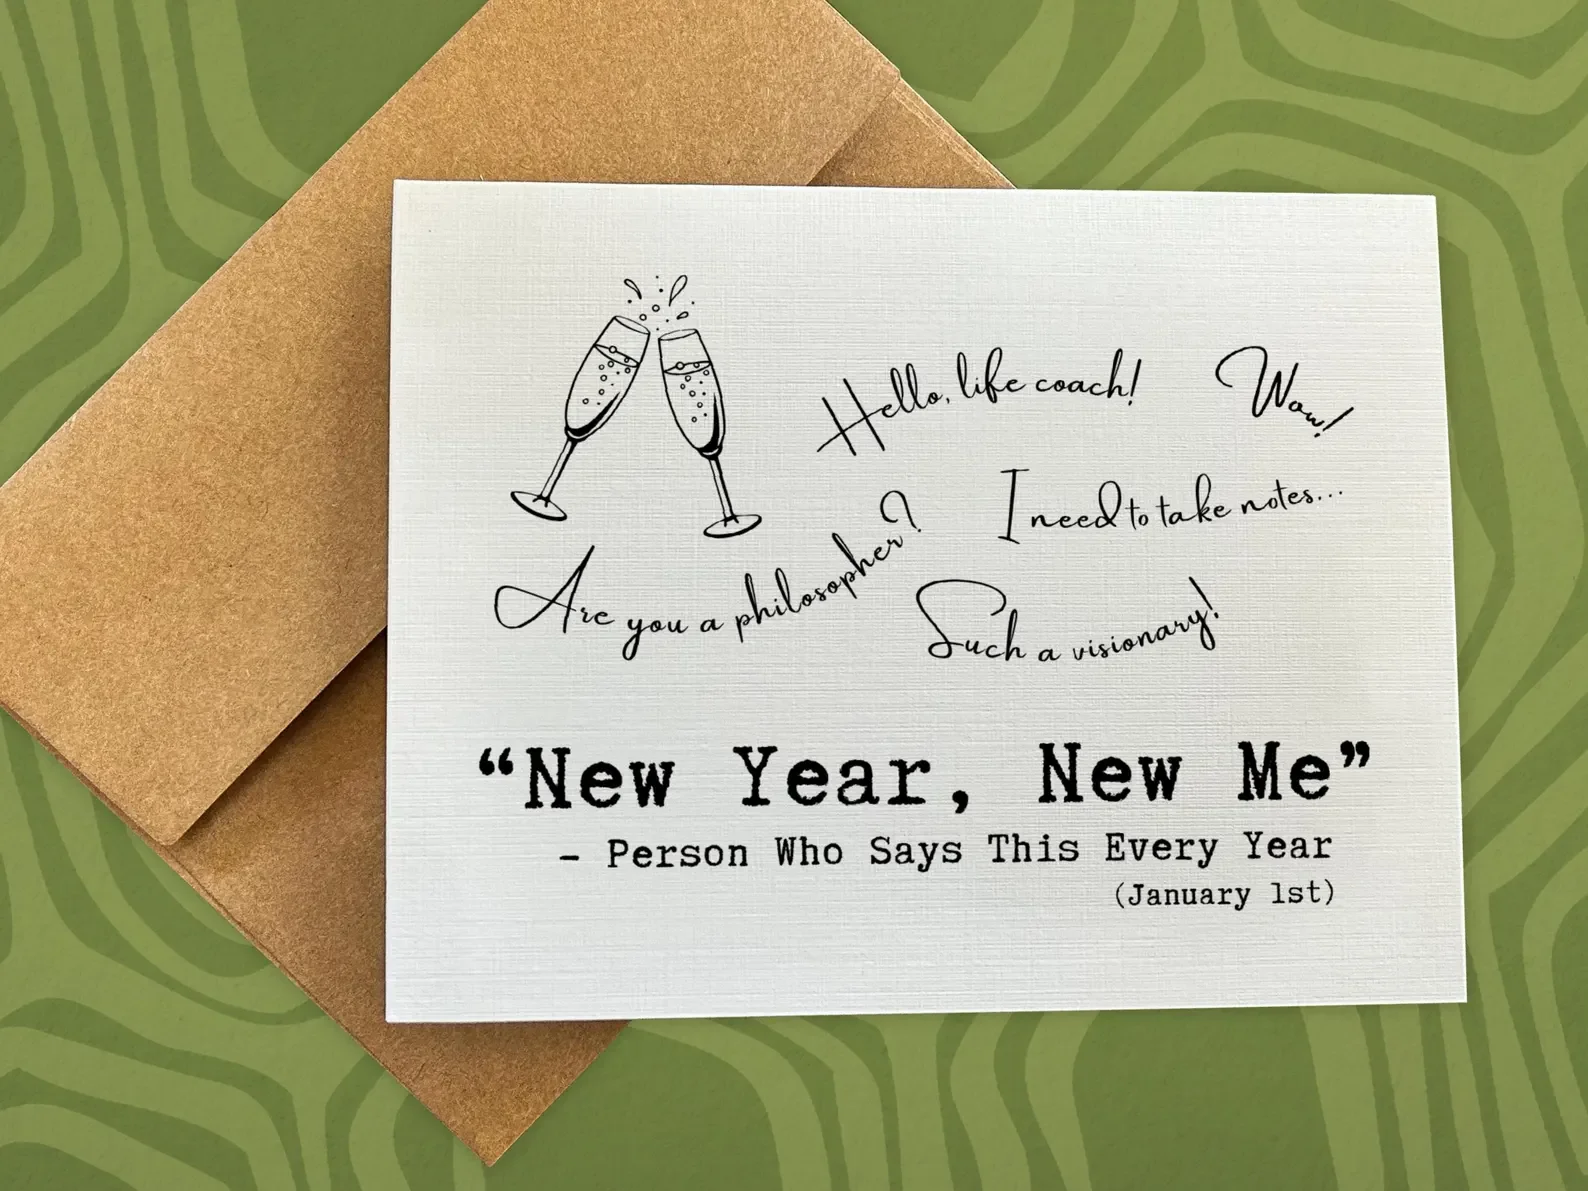 Hello, life coach!
Wow!
I need to take notes...
Are you a philosopher?
Such a visionary!
“New Year, New Me”
– Person Who Says This Every Year
(January 1st)